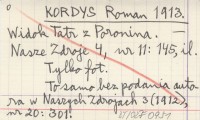 KORDYS Roman 1913.
Widok Tatr z Poronina.
Nasze Zdroje 4, nr 11: 145, il.
Tylko fot.
To samo bez podania auto
ra w Naszych Zdrojach 3 (1912),
nr 20: 301.